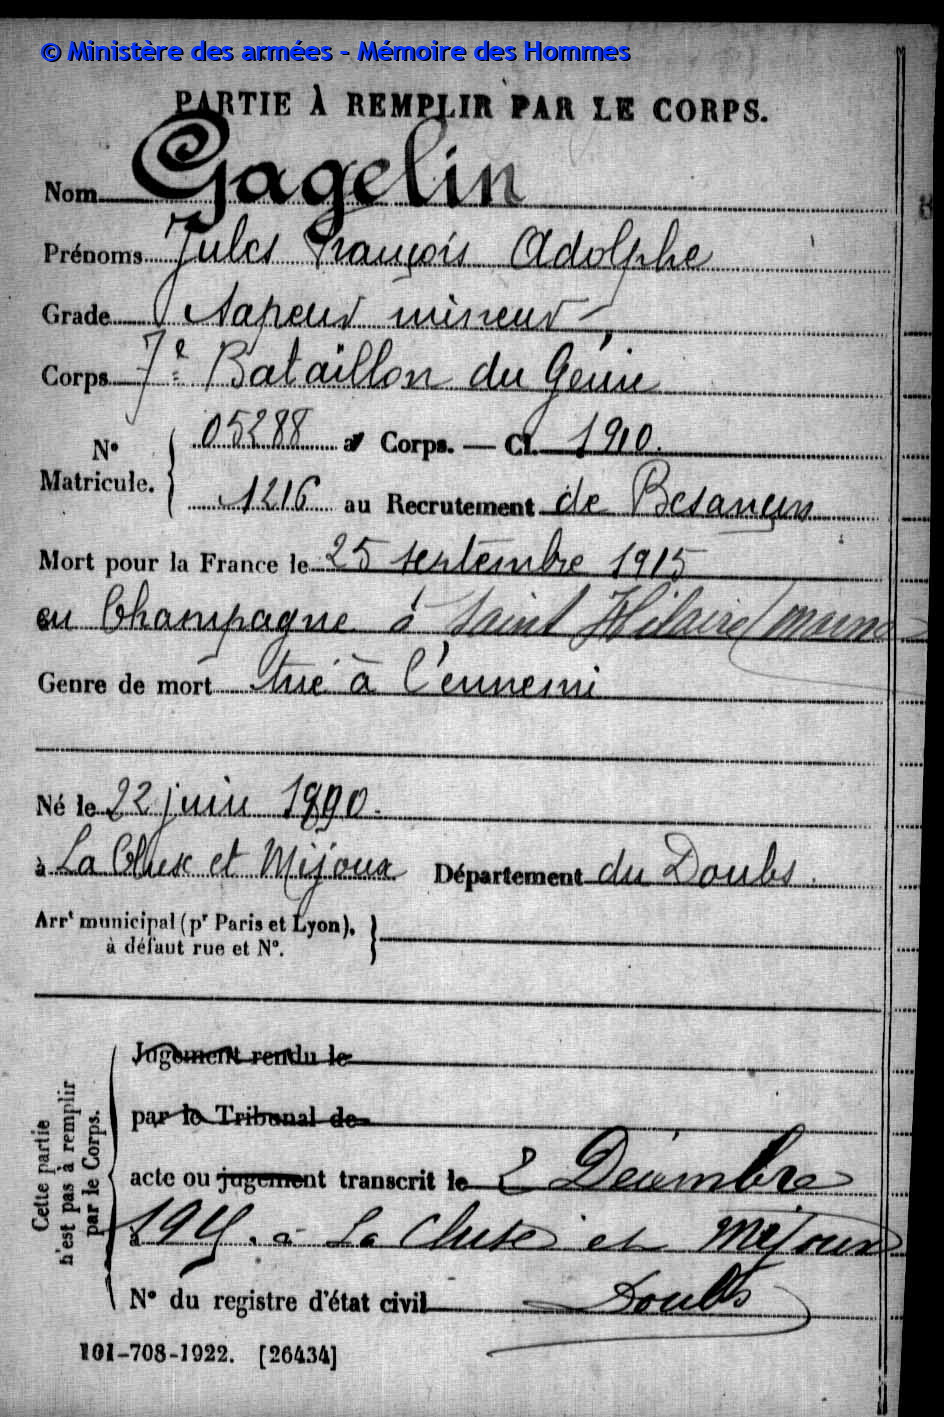 © Ministère des armées - Mémoire des Hommes
PARTIE À REMPLIR PAR LE CORPS.
Nom Gagelin
Prénoms Jules François Adolphe
Grade Sapeur mineur
Corps 7e Bataillon du Génie
N° Matricule. { 05288 au Corps. — Cl. 1910.
1216 au Recrutement de Besançon
Mort pour la France le 25 septembre 1915
en Champagne à Saint Hilaire
Genre de mort tué à l'ennemi
Né le 22 juin 1890.
à La Cluse et Mijoux Département du Doubs.
Arrt municipal (pr Paris et Lyon),
à défaut rue et N°.
Cette partie
n'est pas à remplir
par le Corps.
Jugement rendu le
par le Tribunal de
acte ou jugement transcrit le 2 Décembre
à 1915. à La Cluse et Mijoux
N° du registre d'état civil Doubs
101-708-1922. [26434]